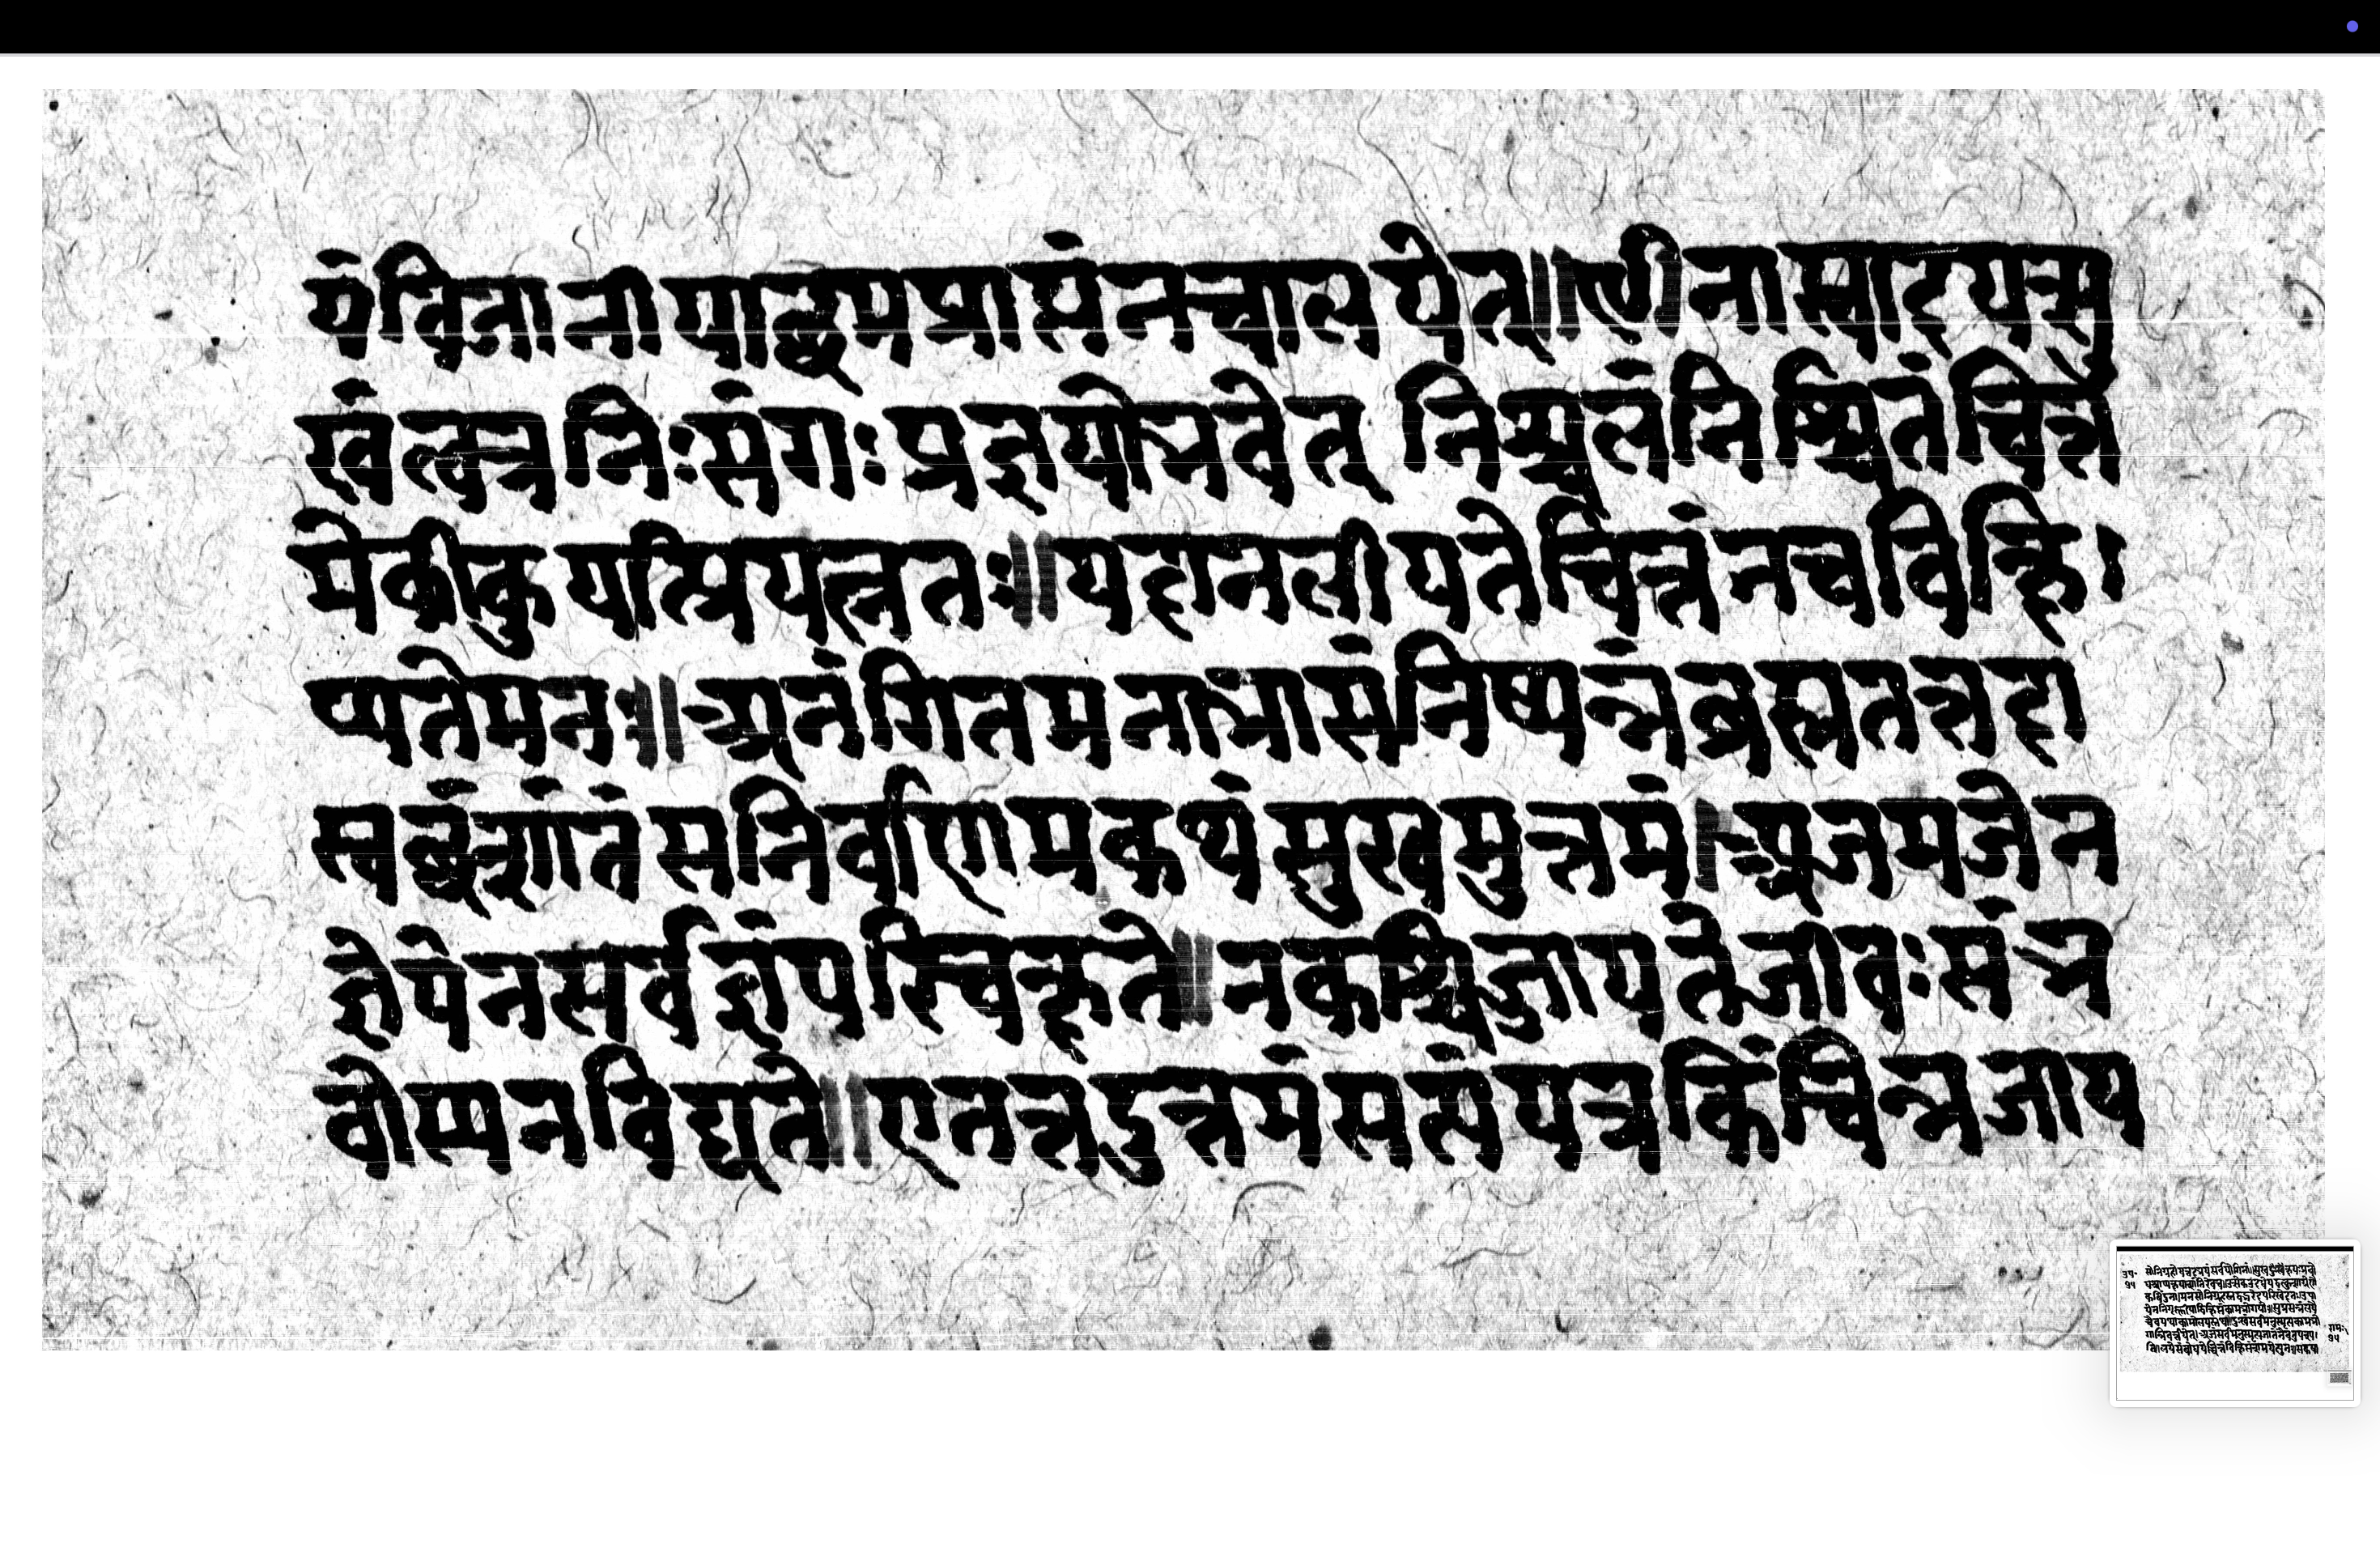 यं विजानीयाच्छमप्राप्तं न चालयेत्॥ धी नास्वादयत्सु
खं तत्र निःसंगः प्रज्ञयो भवेत् निश्चलं निश्चितं चित्त
मेकीकुर्यात्प्रयत्नतः॥ यदा न लीयते चित्तं न च विक्षि
प्यते मनः॥ अनंगितमनाभासं निष्पन्नं ब्रह्म तत्तदा
स्वच्छं शांतं सनिर्वाणमकथं सुखमुत्तमं। अजमजेन
ज्ञेयेन सर्वज्ञं परिचक्षते॥ न कश्चिज्जायते जीवः संभ
वोस्य न विद्यते॥ एतत्तदुत्तमं सत्यं यत्र किंचिन्न जाय